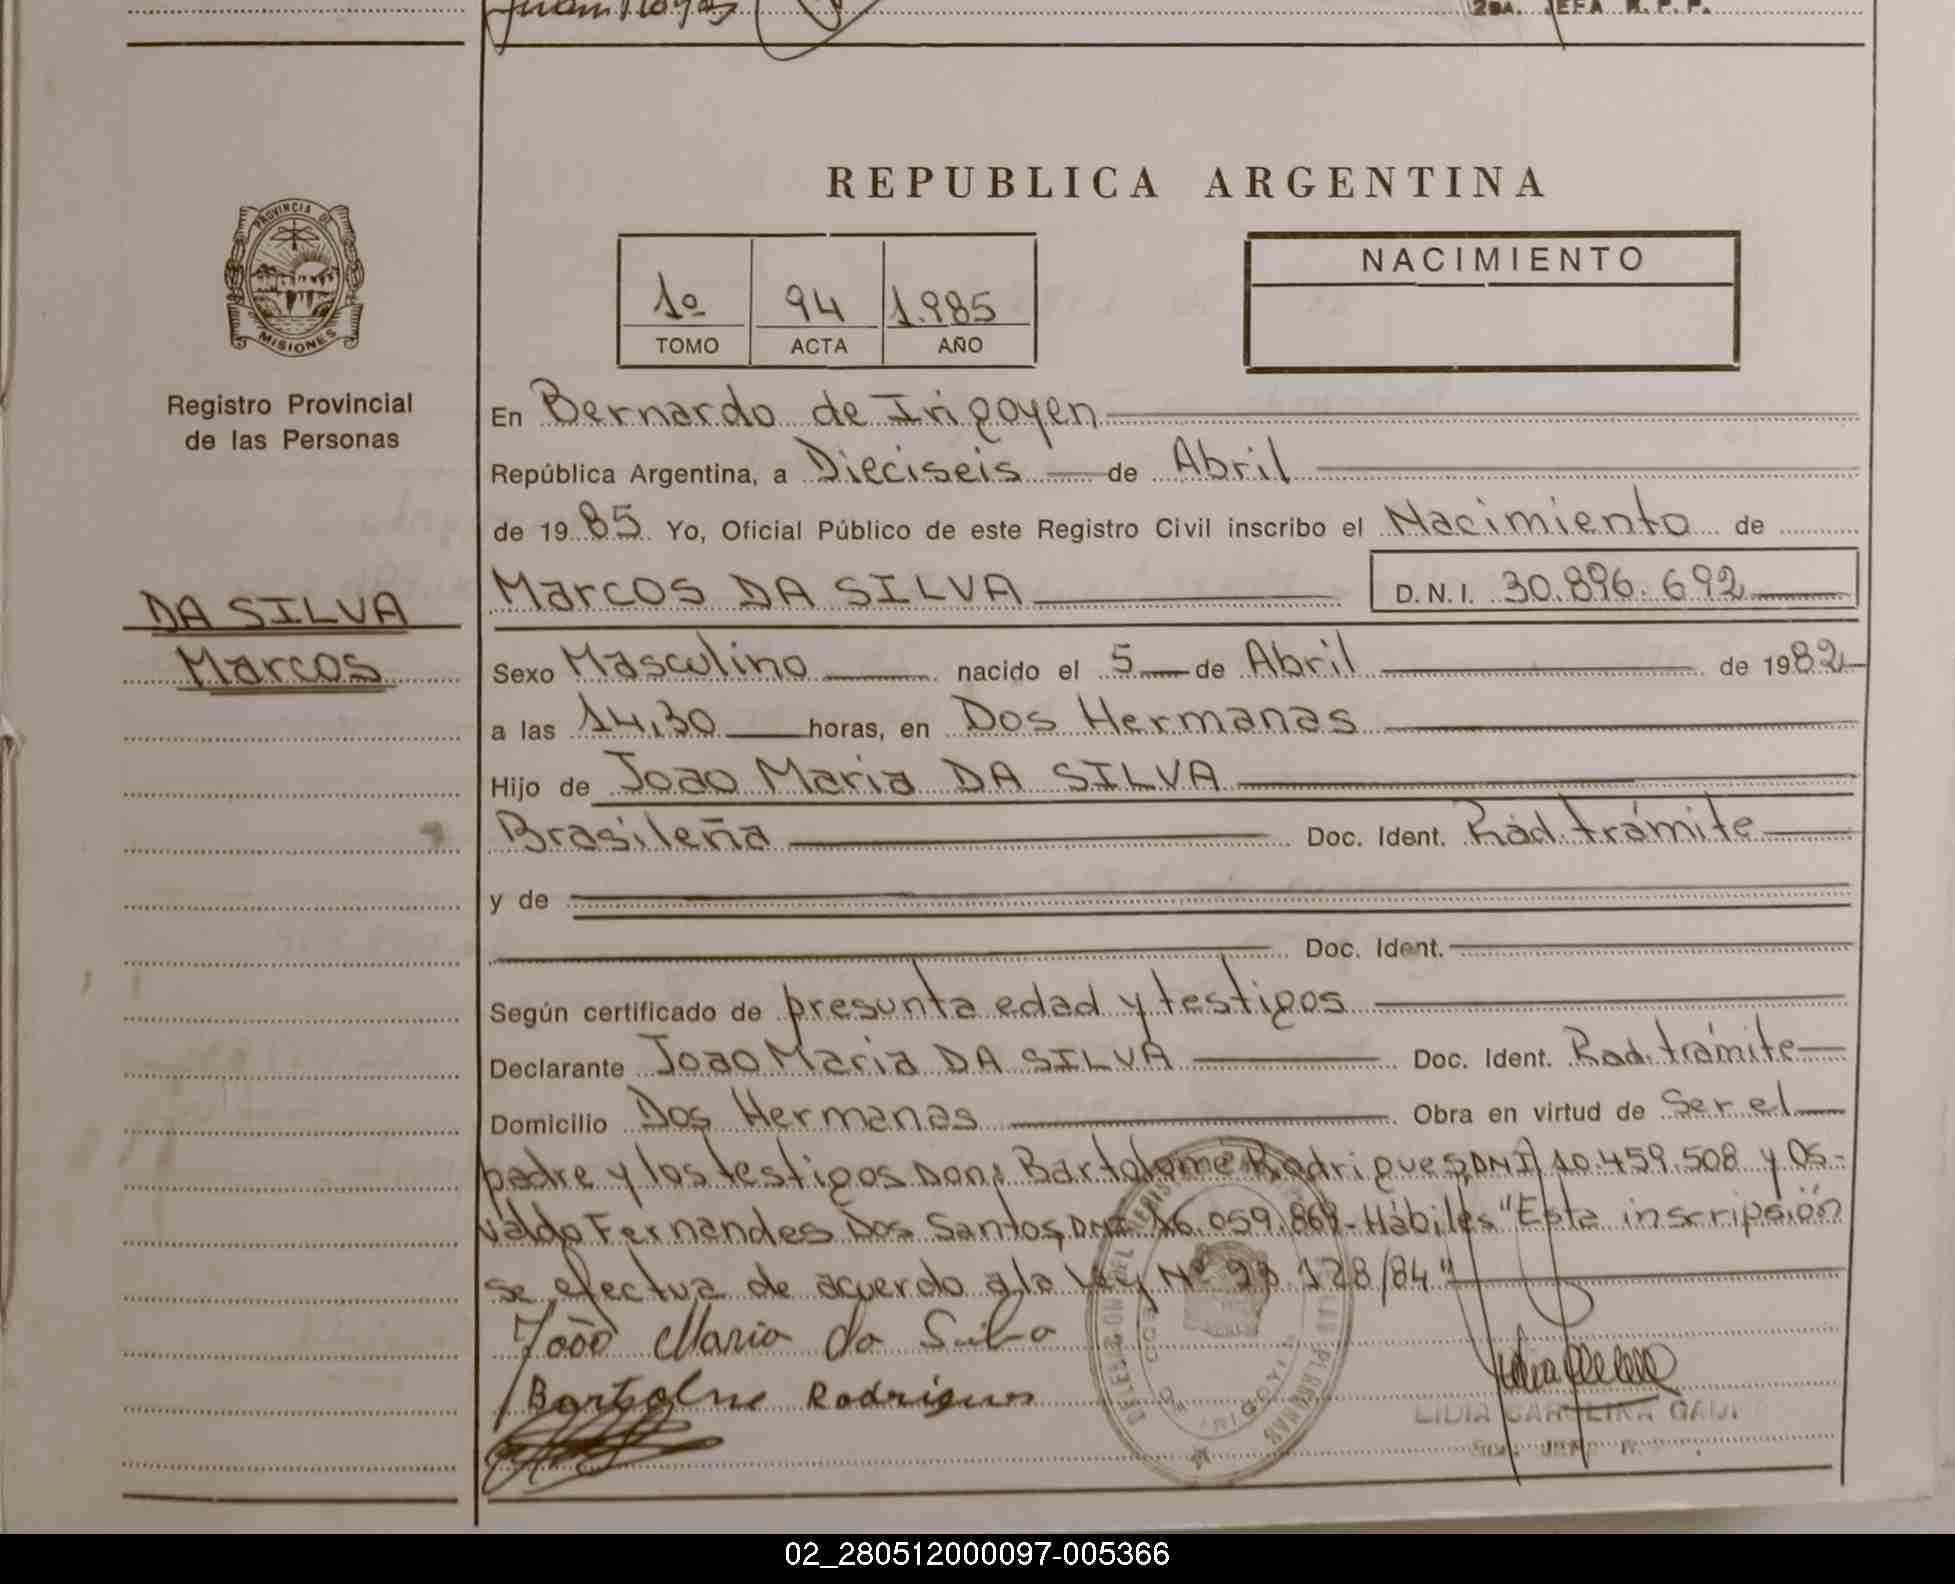 Juan Rojas
2DA. JEFA R. P. P.
REPUBLICA ARGENTINA
PROVINCIA DE
MISIONES
NACIMIENTO
1º 94 1.985
TOMO ACTA AÑO
Registro Provincial
de las Personas
En Bernardo de Irigoyen
República Argentina, a Dieciseis de Abril
de 1985 Yo, Oficial Público de este Registro Civil inscribo el Nacimiento de
Marcos DA SILVA D.N.I. 30.896.692
DA SILVA
Marcos
Sexo Masculino nacido el 5 de Abril de 1982
a las 14,30 horas, en Dos Hermanas
Hijo de Joao Maria DA SILVA
Brasileña Doc. Ident. Rad. trámite
y de
Doc. Ident.
Según certificado de presunta edad y testigos
Declarante Joao Maria DA SILVA Doc. Ident. Rad. trámite
Domicilio Dos Hermanas Obra en virtud de Ser el
padre y los testigos Don: Bartolome Rodrigues, DNI 10.459.508 y Os-
valdo Fernandes Dos Santos, DNI 16.059.869- Hábiles "Esta inscripsión
se efectua de acuerdo a la Ley Nº 23.128/84"
João Maria da Silva
Bartolme Rodrigues
LIDIA CAROLINA
02_280512000097-005366